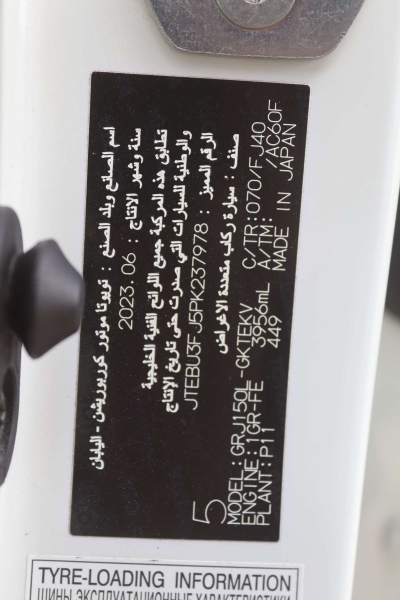 اسم الصانع وبلد الصنع : تويوتا موتور كوربوريشن - اليابان
سنة وشهر الانتاج : 2023.06
تطابق هذه المركبة جميع اللوائح الفنية الخليجية
والوطنية للسيارات التي صدرت حتى تاريخ الإنتاج
الرقم المميز : JTEBU3FJ5PK237978
صنف : سيارة ركاب متعددة الاغراض
5
MODEL: GRJ150L-GKTEKV C/TR: 070/FJ40
ENGINE: 1GR-FE 3956mL A/TM: /AC60F
PLANT: P11 449 MADE IN JAPAN
TYRE-LOADING INFORMATION
ШИНЫ ЭКСПЛУАТАЦИОННЫЕ ХАРАКТЕРИСТИКИ